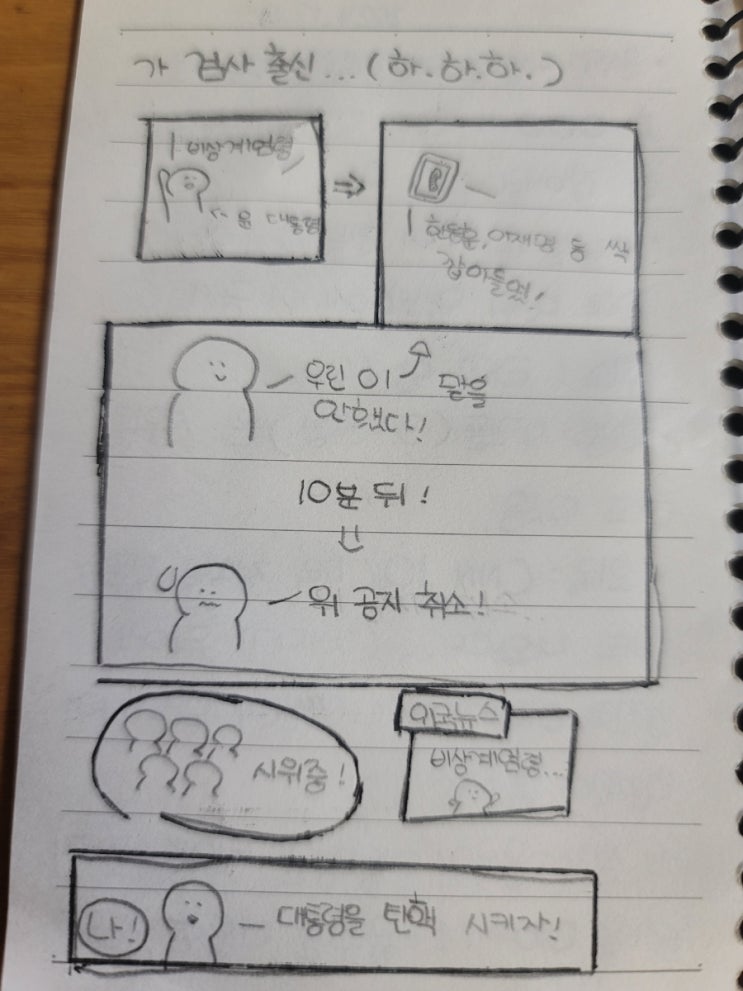 가 검사 출신...(하.하.하.)
비상계엄령
윤 대통령
한동훈, 이재명 등 싹
잡아들여!
우린 이 말을
안했다!
10분 뒤!
위 공지 취소!
시위중!
외국뉴스
비상계엄령...
나!
대통령을 탄핵 시키자!